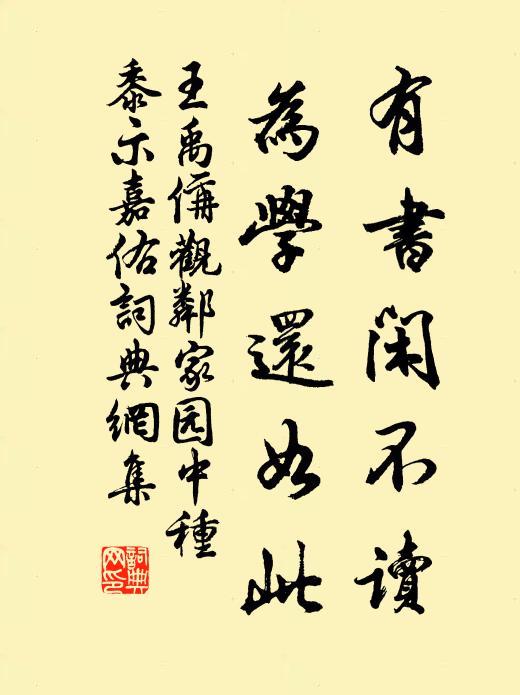 有書閑不讀
為學還如此
王禹偁觀鄰家园中種
黍示嘉佑詞典網集
詞典网印